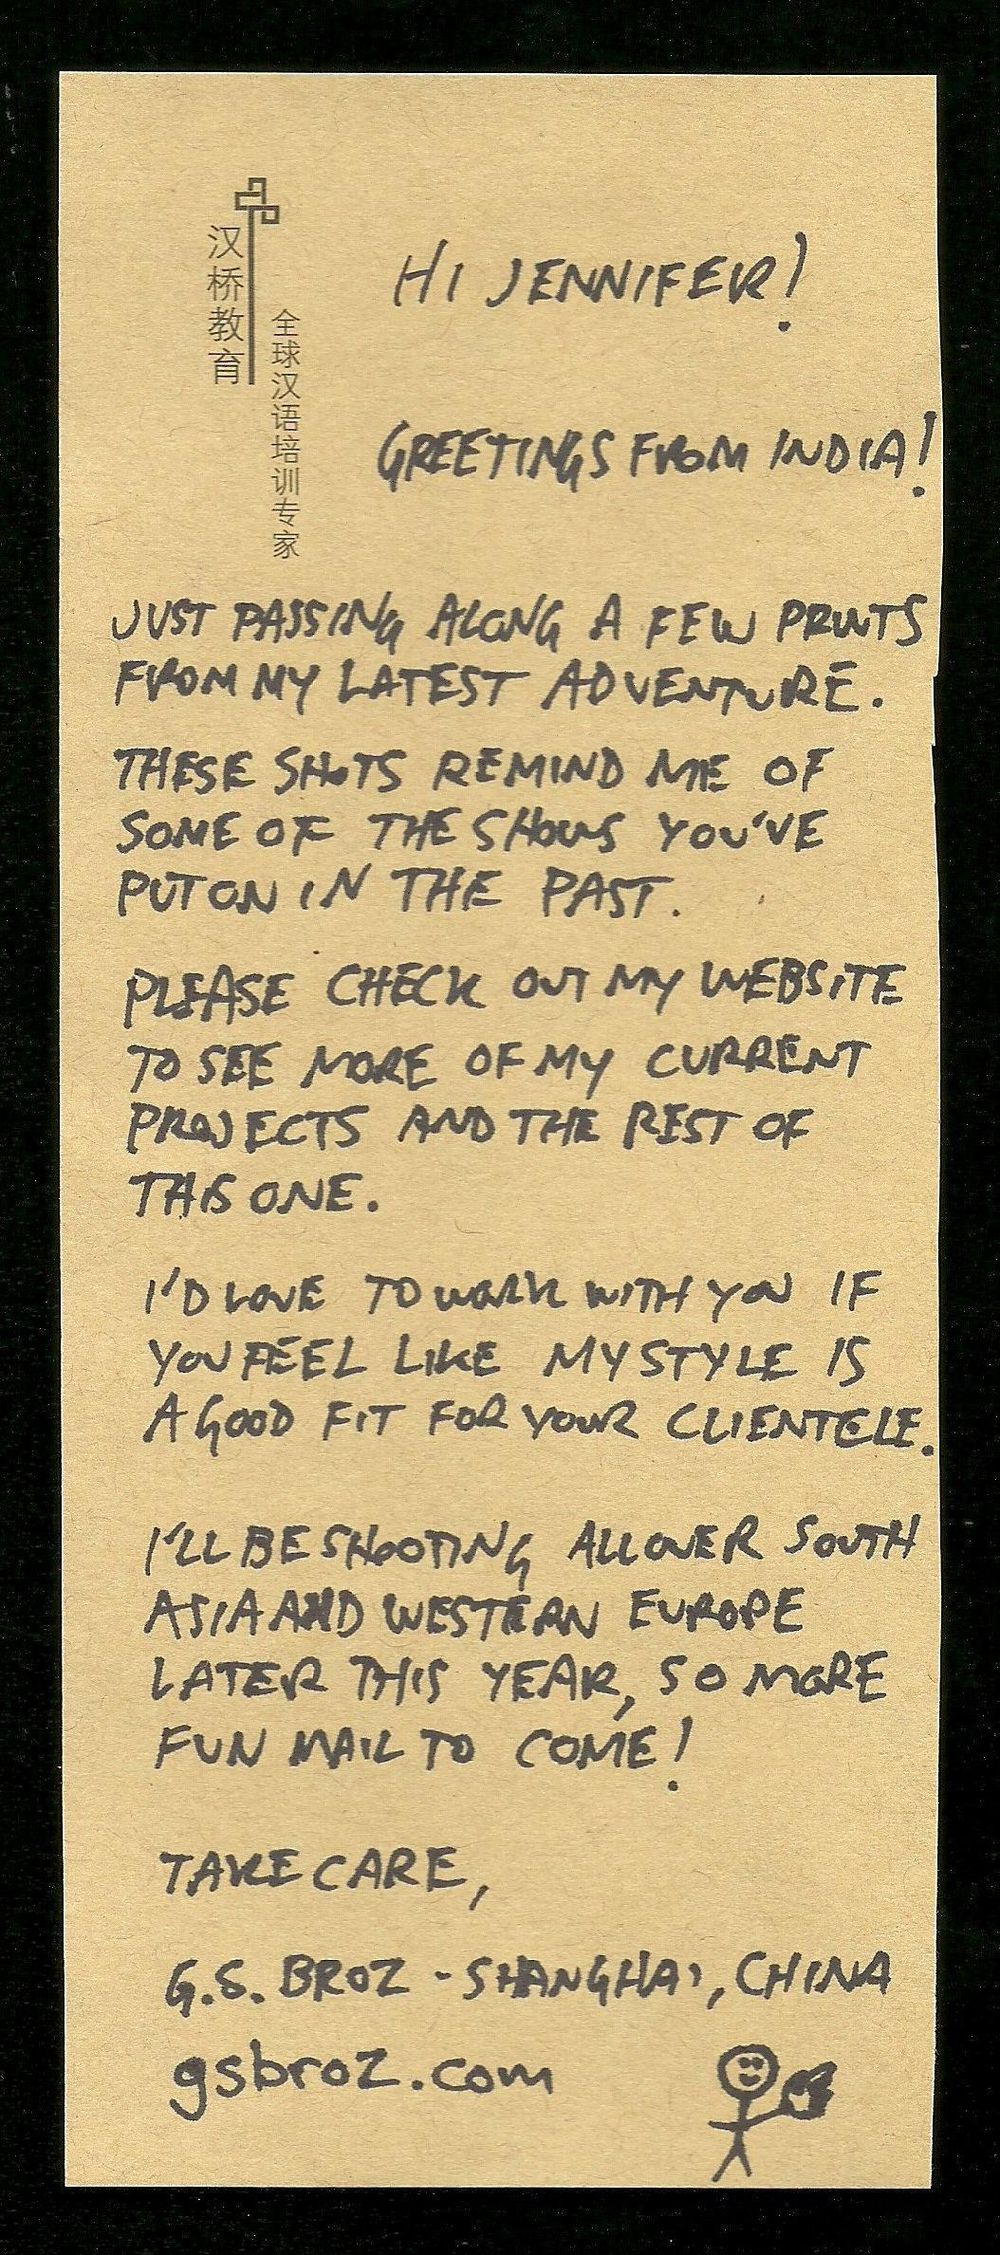 汉桥教育
全球汉语培训专家
HI JENNIFER!
GREETINGS FROM INDIA!
JUST PASSING ALONG A FEW PRINTS
FROM MY LATEST ADVENTURE.
THESE SHOTS REMIND ME OF
SOME OF THE SHOWS YOU'VE
PUT ON IN THE PAST.
PLEASE CHECK OUT MY WEBSITE
TO SEE MORE OF MY CURRENT
PROJECTS AND THE REST OF
THIS ONE.
I'D LOVE TO WORK WITH YOU IF
YOU FEEL LIKE MY STYLE IS
A GOOD FIT FOR YOUR CLIENTELE.
I'LL BE SHOOTING ALL OVER SOUTH
ASIA AND WESTERN EUROPE
LATER THIS YEAR, SO MORE
FUN MAIL TO COME!
TAKE CARE,
G.S. BROZ - SHANGHAI, CHINA
gsbroz.com